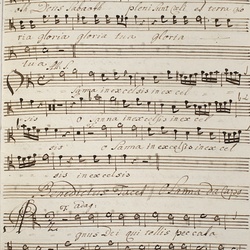 Deus Sabaoth pleni sunt coeli et terra glo
ria gloria gloria tua gloria
tua
All:
sanna in excelsis in excel
sis o sanna in excelsis
sis o sanna in excelsis in excel
sis in excelsis
Benedictus Tacet Osanna Da Capo
adag:
gnus Dei qui tollis peccata